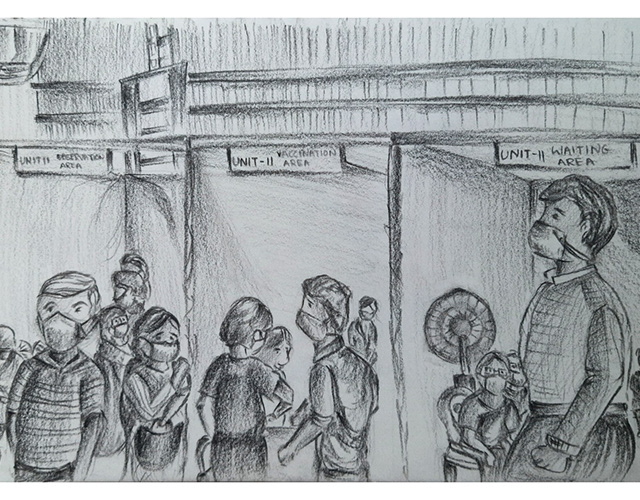 UNIT-11 OBSERVATION
AREA
UNIT-11 VACCINATION
AREA
UNIT-11 WAITING
AREA